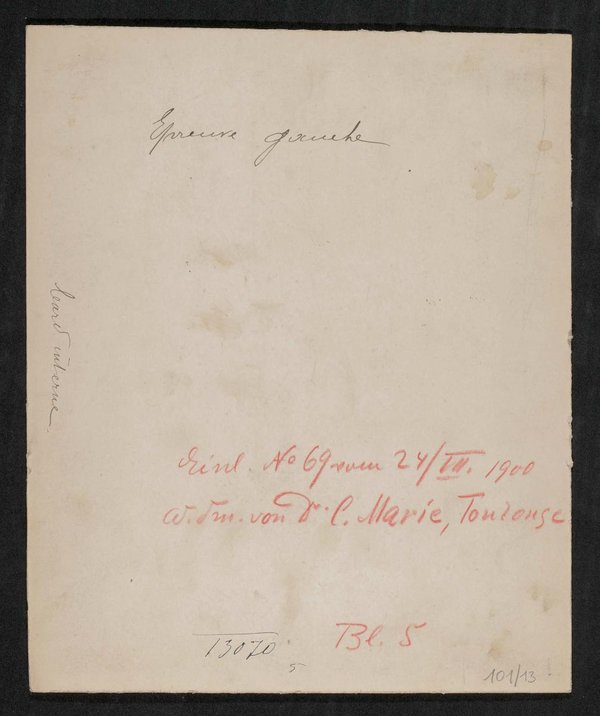 Epreuve gauche
bord interne
Einl. No 69 vom 24/VII. 1900
d. Dr. C. Marie, Toulouse
Bl. 5
13070
5
101/13